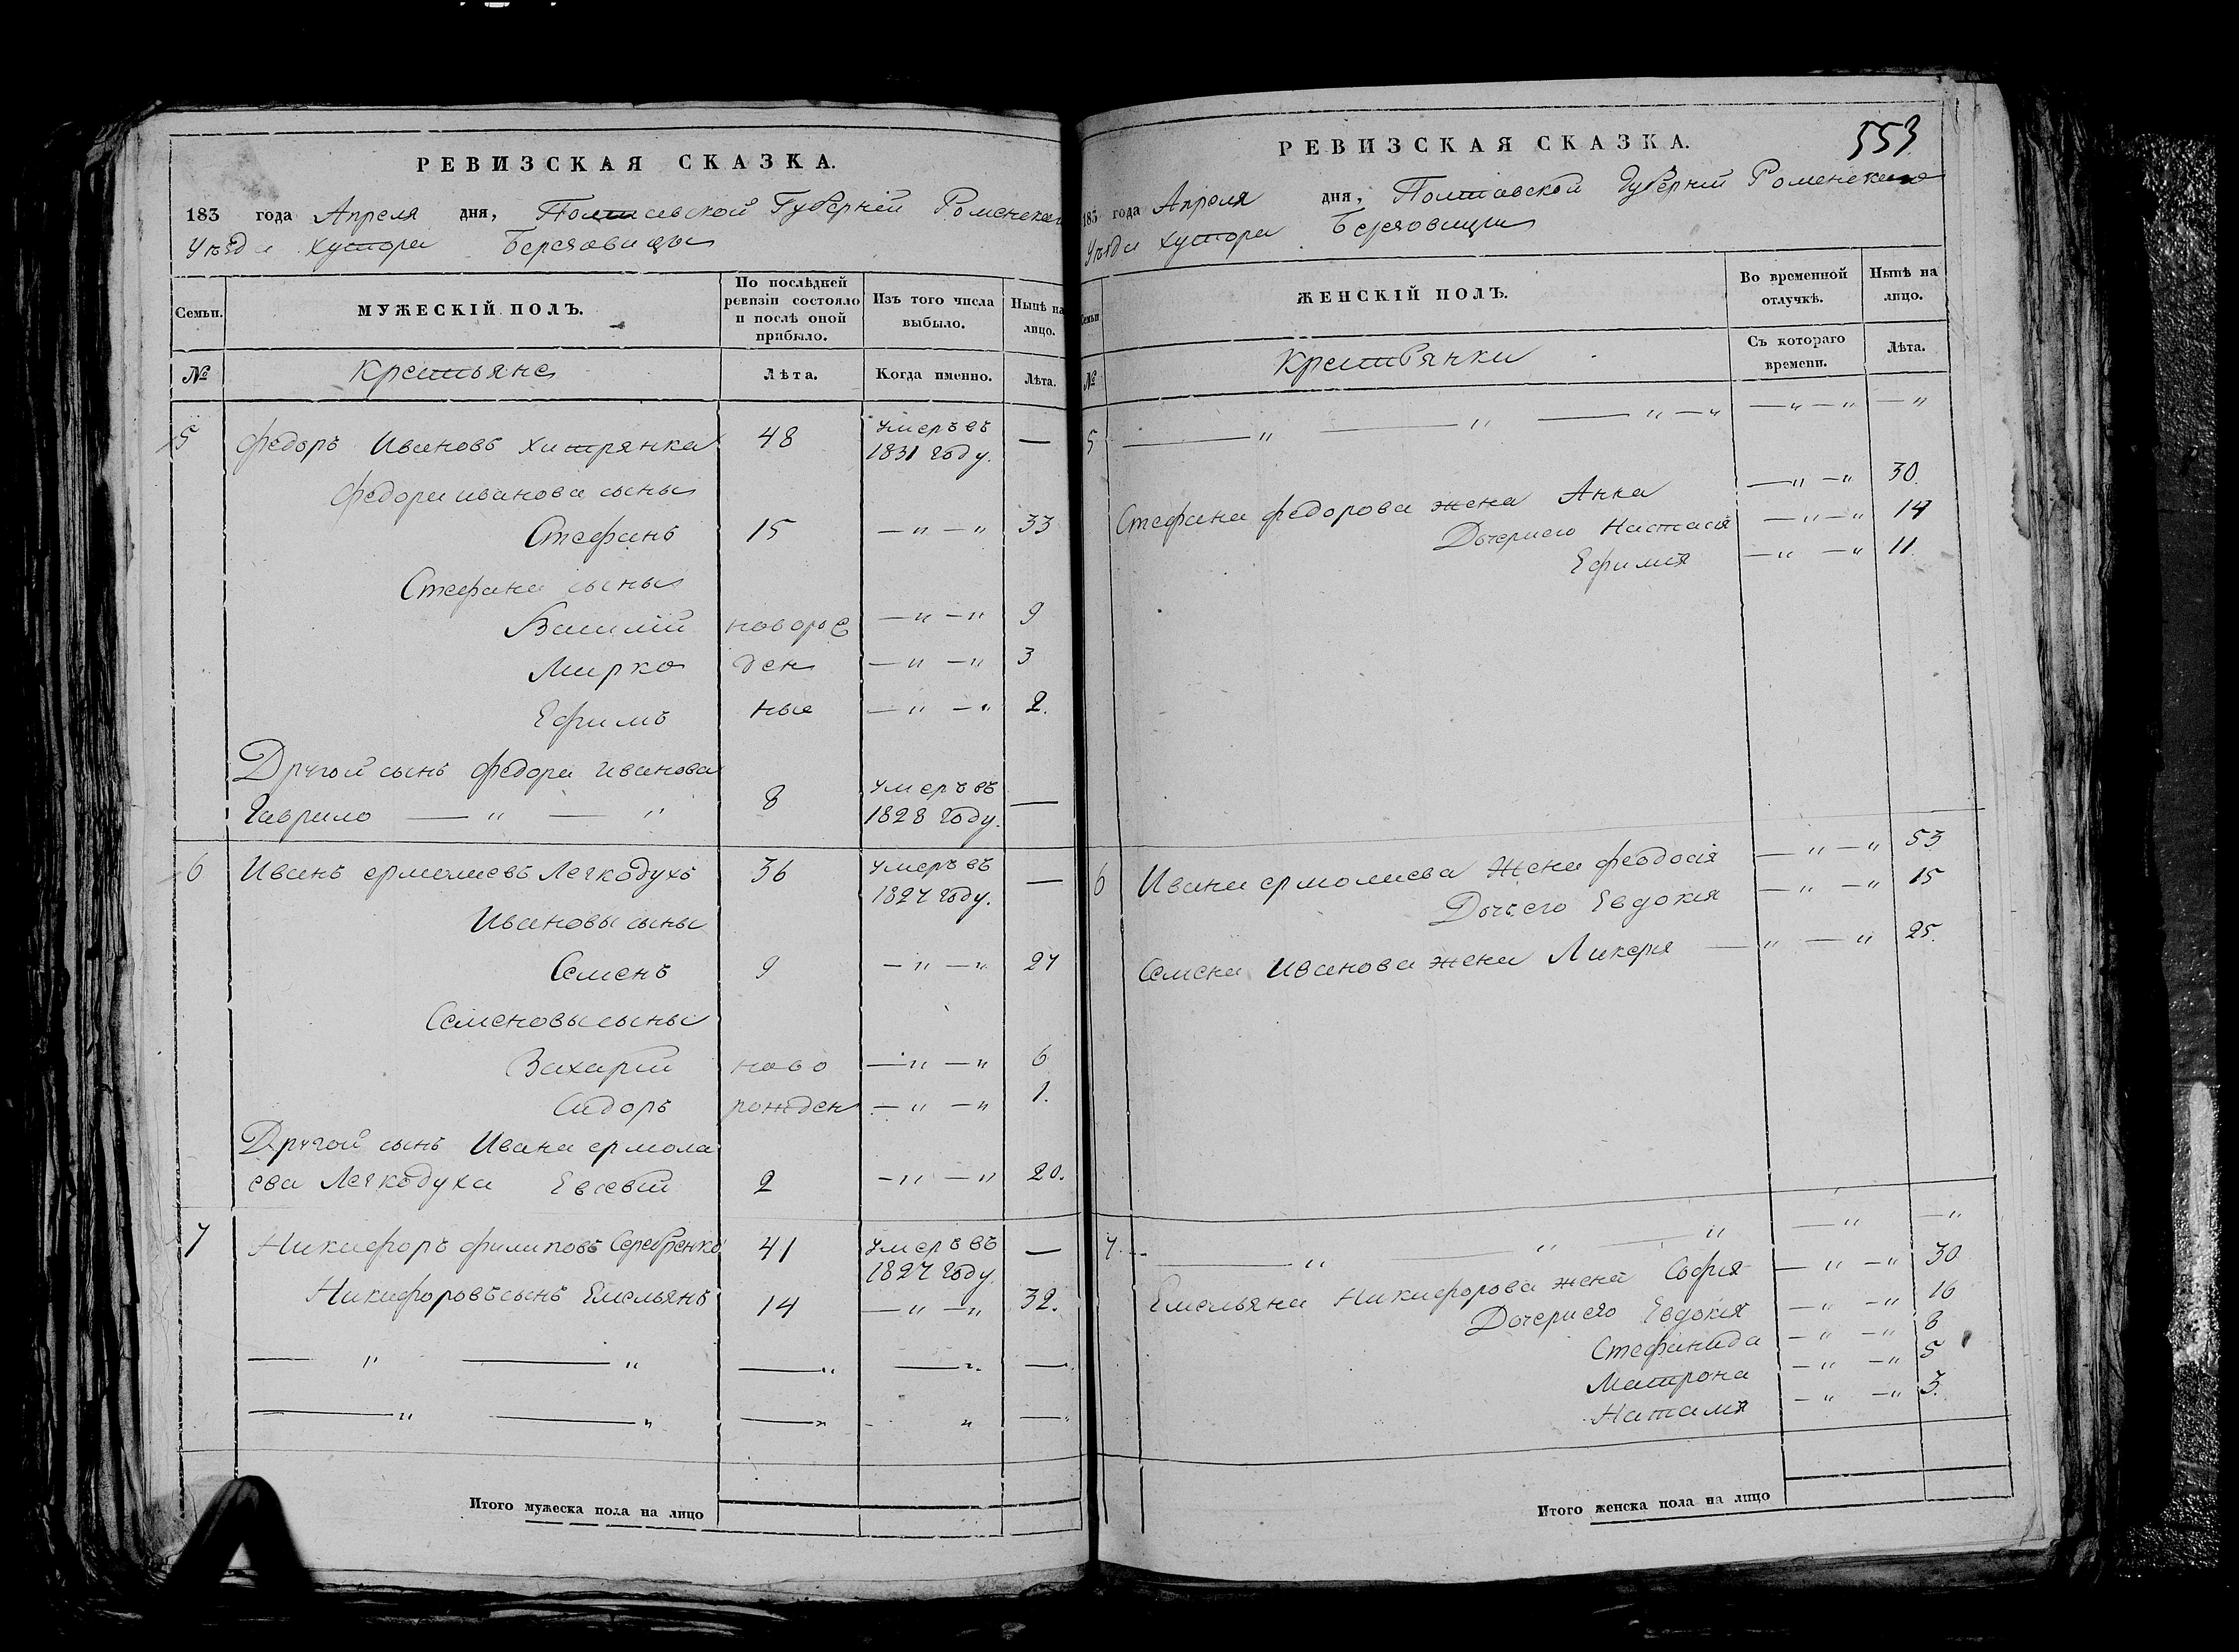 РЕВИЗСКАЯ СКАЗКА.
183 года Апреля дня, Полтавской Губерніи Роменскаго
Уезда хутора Березовицы
Семьи.
МУЖЕСКІЙ ПОЛЪ.
По послѣдней ревизіи состояло и послѣ оной прибыло.
Изъ того числа выбыло.
Нынѣ на лицо.
№
Крестьяне
Лѣта.
Когда именно.
Лѣта.
5 Федоръ Ивановъ Хитрянка 48 Умеръ въ 1831 году. —
Федора иванова сыны
Стефанъ 15 — „ — „ 33
Стефана сыны
Василій новорож — „ — „ 9
Мирко ден — „ — „ 3
Ефимъ ные — „ — „ 2.
Другой сынъ Федора иванова
Гаврило — „ — „ 8 Умеръ въ 1828 году. —
6 Иванъ ермолаевъ Легкодухъ 36 Умеръ въ 1827 году. —
Ивановы сыны
Семенъ 9 — „ — „ 27
Семеновы сыны
Захарій ново — „ — „ 6
Сидоръ рожден — „ — „ 1.
Другой сынъ Ивана ермола
ева Легкодуха Евсевій 2 — „ — „ 20.
7 Никифоръ филиповъ Серебренко 41 Умеръ въ 1827 году —
Никифоровъ сынъ Емельянъ 14 — „ — „ 32.
— „ — „ — „ — „ —
— „ — „ — „ — „ —
Итого мужеска пола на лицо
553
РЕВИЗСКАЯ СКАЗКА.
183 года Апреля дня, Полтавской Губерніи Роменскаго
Уезда хутора Березовицы
Семьи
ЖЕНСКІЙ ПОЛЪ.
Во временной отлучкѣ.
Нынѣ на лицо.
№
Крестьянки
Съ котораго времени.
Лѣта.
5 — „ — „ — „ — „ — „ — „ — „
Стефана федорова жена Анна — „ — „ 30.
Дочери его Настасія — „ — „ 14
Ефимія — „ — „ 11.
6 Ивана ермолаева Жена феодосія — „ — „ 53
Дочь его Евдокія — „ — „ 15
Семена Иванова жена Ликерія — „ — „ 25.
7. — „ — „ — „ — „ — „
Емельяна Никифорова жена Софія — „ — „ 30
Дочери его Евдокія — „ — „ 16
Стефанида — „ — „ 8
Матрона — „ — „ 5
Наталія — „ — „ 3.
Итого женска пола на лицо